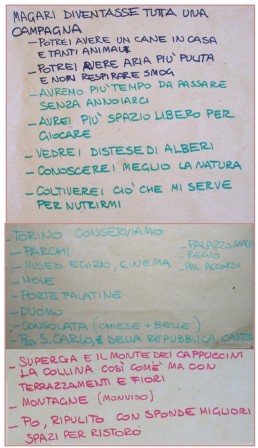 MAGARI DIVENTASSE TUTTA UNA
CAMPAGNA
- POTREI AVERE UN CANE IN CASA
E TANTI ANIMALI
- POTREI AVERE ARIA PIU' PULITA
E NON RESPIRARE SMOG
- AVREMO PIU' TEMPO DA PASSARE
SENZA ANNOIARCI
- AVREI PIU' SPAZIO LIBERO PER
GIOCARE
- VEDREI DISTESE DI ALBERI
- CONOSCEREI MEGLIO LA NATURA
- COLTIVEREI CIO' CHE MI SERVE
PER NUTRIRMI
- TORINO CONSERVIAMO
- PARCHI
- MUSEO EGIZIO, CINEMA
- MOLE
- PORTE PALATINE
- DUOMO
- CONSOLATA (CHIESE + BELLE)
- P.ZA S. CARLO, E DELLA REPUBBLICA,
- PALAZZO
- REGIO
- PAL. ACCORSI
- SUPERGA E IL MONTE DEI CAPPUCCINI
LA COLLINA COSÌ COM'È MA CON
TERRAZZAMENTI E FIORI
- MONTAGNE (MONVISO)
- PO, RIPULITO CON SPONDE MIGLIORI
SPAZI PER RISTORO